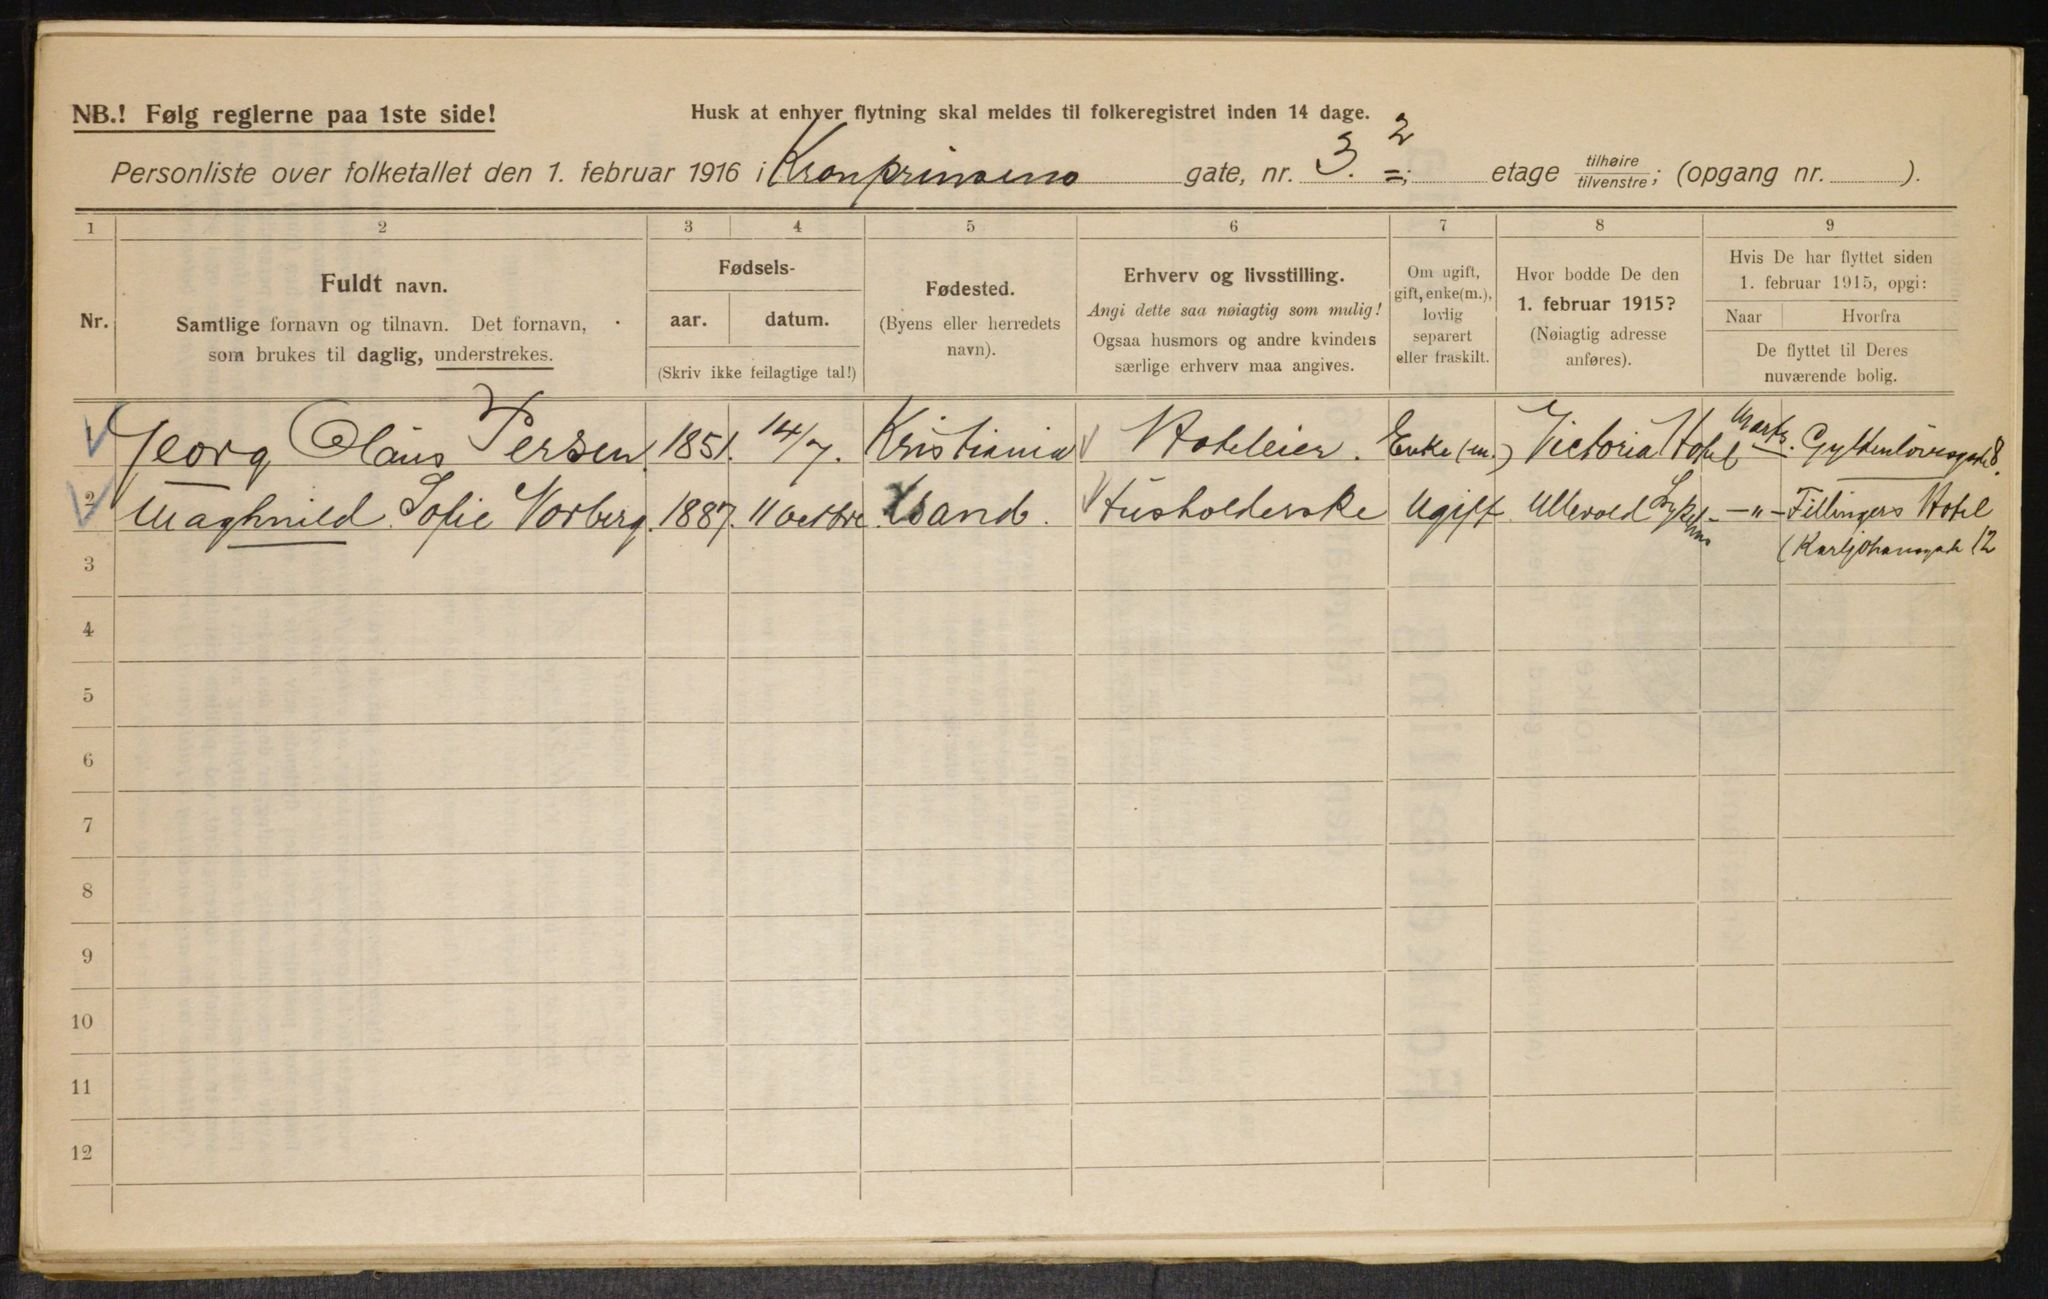 NB.! Følg reglerne paa 1ste side!
Husk at enhver flytning skal meldes til folkeregistret inden 14 dage.
Personliste over folketallet den 1. februar 1916 i Kronprinsens gate, nr. 3. 2 etage tilhøire/tilvenstre; (opgang nr. ).
1 2 3 4 5 6 7 8 9
Nr.
Fuldt navn.
Samtlige fornavn og tilnavn. Det fornavn,
som brukes til daglig, understrekes.
Fødsels-
aar. datum.
(Skriv ikke feilagtige tal!)
Fødested.
(Byens eller herredets
navn).
Erhverv og livsstilling.
Angi dette saa nøiagtig som mulig!
Ogsaa husmors og andre kvinders
særlige erhverv maa angives.
Om ugift,
gift, enke(m.),
lovlig
separert
eller fraskilt.
Hvor bodde De den
1. februar 1915?
(Nøiagtig adresse
anføres).
Hvis De har flyttet siden
1. februar 1915, opgi:
Naar Hvorfra
De flyttet til Deres
nuværende bolig.
Georg Claus Persen. 1851. 14/7. Kristiania Hoteleier. Enke(m.) Victoria Hotel Marts. Gyldenlövesgade 8.
2 Maghnild Sofie Vorberg. 1887. 11 octbr. Sand. Husholderske Ugift Ullevold Sykehus - " - Fillingers Hotel
3 (Karljohansgade 12
4
5
6
7
8
9
10
11
12